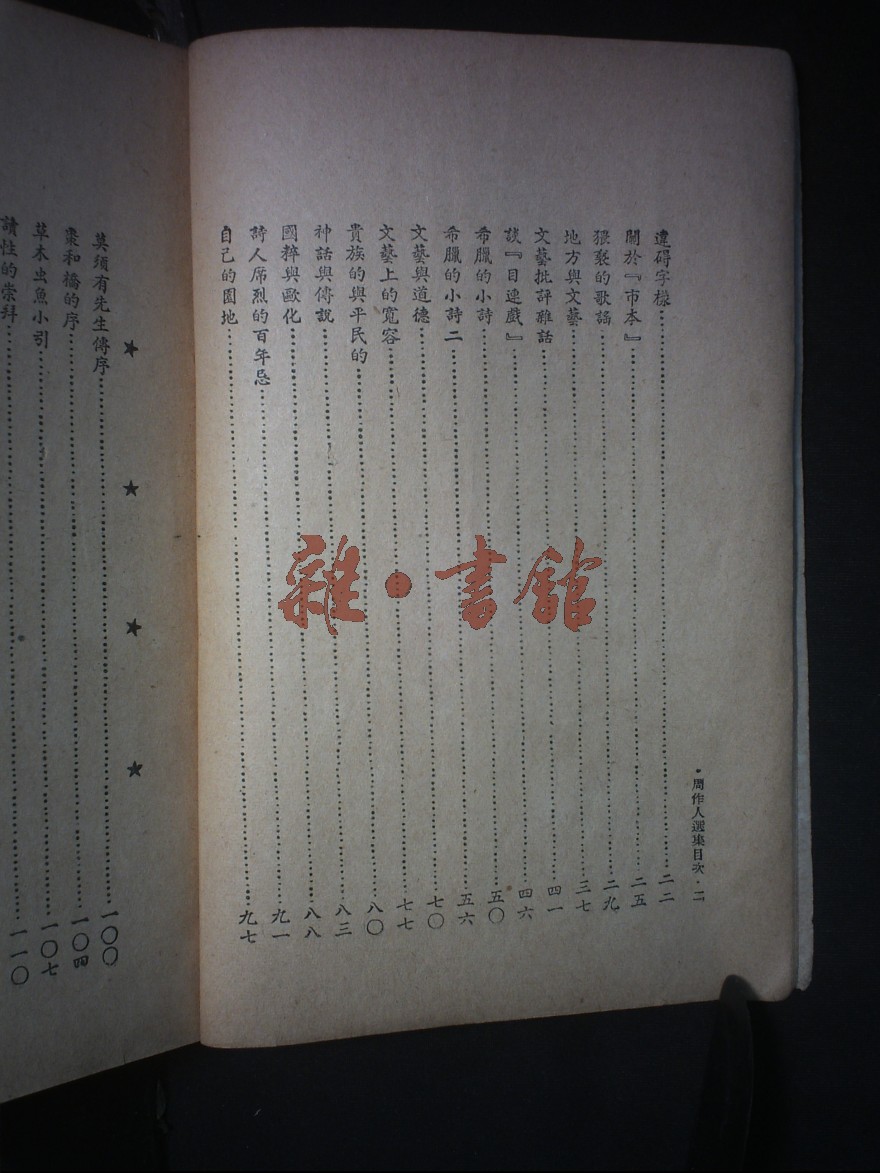 周作人選集目次・二
違碍字樣……二二
關於『市本』……二五
猥褻的歌謠……二九
地方與文藝……三七
文藝批評雜話……四一
談『目連戲』……四六
希臘的小詩……五〇
希臘的小詩二……五六
文藝與道德……七〇
文藝上的寬容……七七
貴族的與平民的……八〇
神話與傳說……八三
國粹與歐化……八八
詩人席烈的百年忌……九一
自己的園地……九七
★ ★ ★ ★
莫須有先生傳序……一〇〇
棗和橋的序……一〇四
草木虫魚小引……一〇七
讀性的崇拜……一一〇
雜・書館